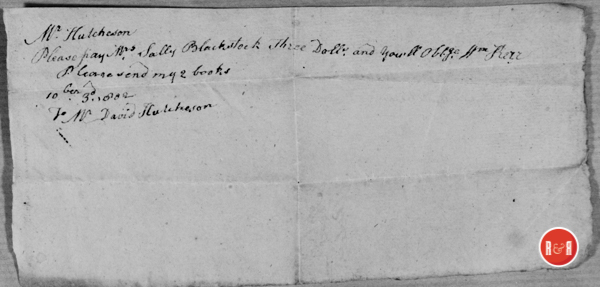 Mr. Hutcheson
Please pay Mrs. Sally Blackstock three Dolls. and you'll Oblge. Wm Kerr
Please send my 2 books
10ber 3d. 1802
To Mr. David Hutcheson
R&R